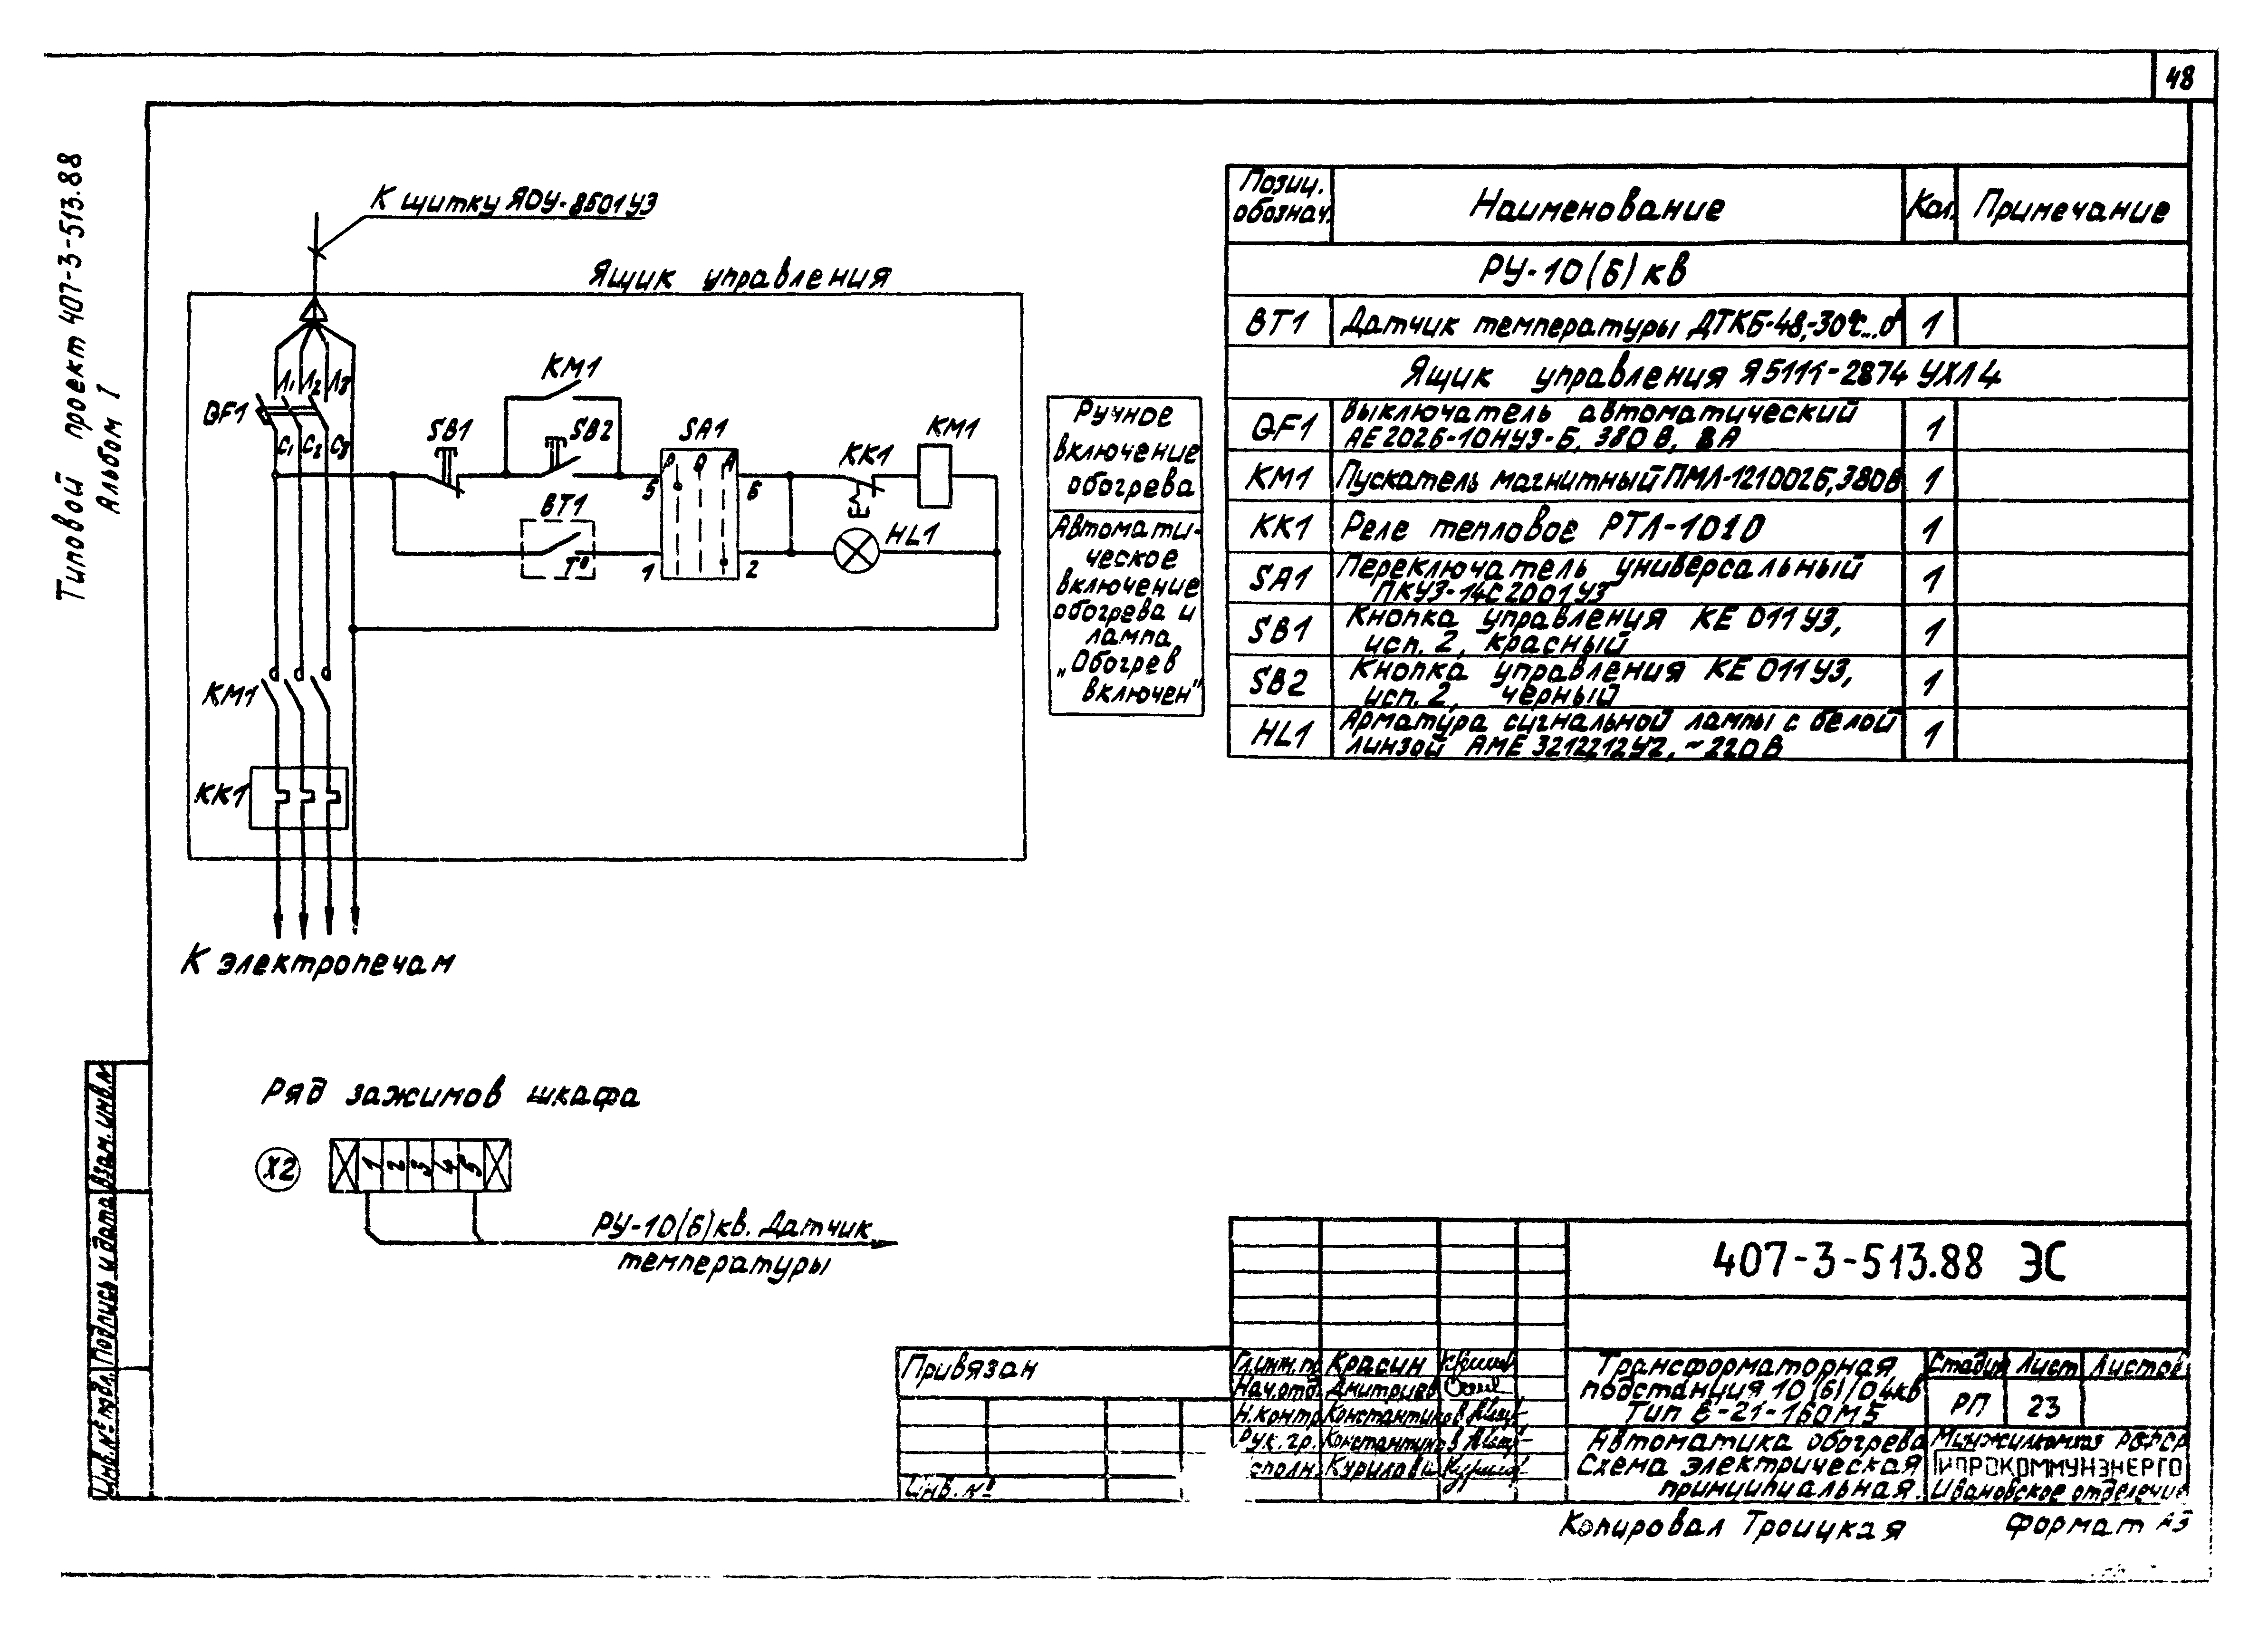 48
Типовой проект 407-3-513.88
Альбом I
К щитку ЯОУ-8501У3
Ящик управления
Л1 Л2 Л3
QF1
С1 С2 С3
SB1
KM1
SB2
BT1
T°
SA1
Р О А
5 6
1 2
KK1
KM1
HL1
KM1
KK1
К электропечам
Ручное
включение
обогрева
Автомати-
ческое
включение
обогрева и
лампа
„Обогрев
включен"
Позиц.
обознач.
Наименование
Кол.
Примечание
РУ-10(6)кв
BT1 Датчик температуры ДТКБ-48,-30°С...0° 1
Ящик управления Я5111-2874 УХЛ4
QF1 Выключатель автоматический
АЕ2026-10НУ3-Б, 380В, 8А 1
KM1 Пускатель магнитный ПМЛ-121002Б,380В 1
KK1 Реле тепловое РТЛ-1010 1
SA1 Переключатель универсальный
ПКУ3-14С2001У3 1
SB1 Кнопка управления КЕ 011У3,
исп. 2, красный 1
SB2 Кнопка управления КЕ 011У3,
исп. 2, черный 1
HL1 Арматура сигнальной лампы с белой
линзой АМЕ 3212212У2, ~220В 1
Ряд зажимов шкафа
X2
1 2 3 4 5
РУ-10(6)кв. Датчик
температуры
Взам. инв.№
Подпись и дата
Инв.№ подл.
Привязан
Инв. №
407-3-513.88 ЭС
Гл.инж.пр Красин
Нач.отд. Дмитриев
Н.контр Константинов
Рук.гр. Константинов
Исполн. Курилович
Трансформаторная
подстанция 10(6)/0,4кв
Тип В-21-160М5
Стадия Лист Листов
РП 23
Автоматика обогрева
Схема электрическая
принципиальная.
Минжилкомхоз РСФСР
ГИПРОКОММУНЭНЕРГО
Ивановское отделение
Копировал Троицкая
Формат А3